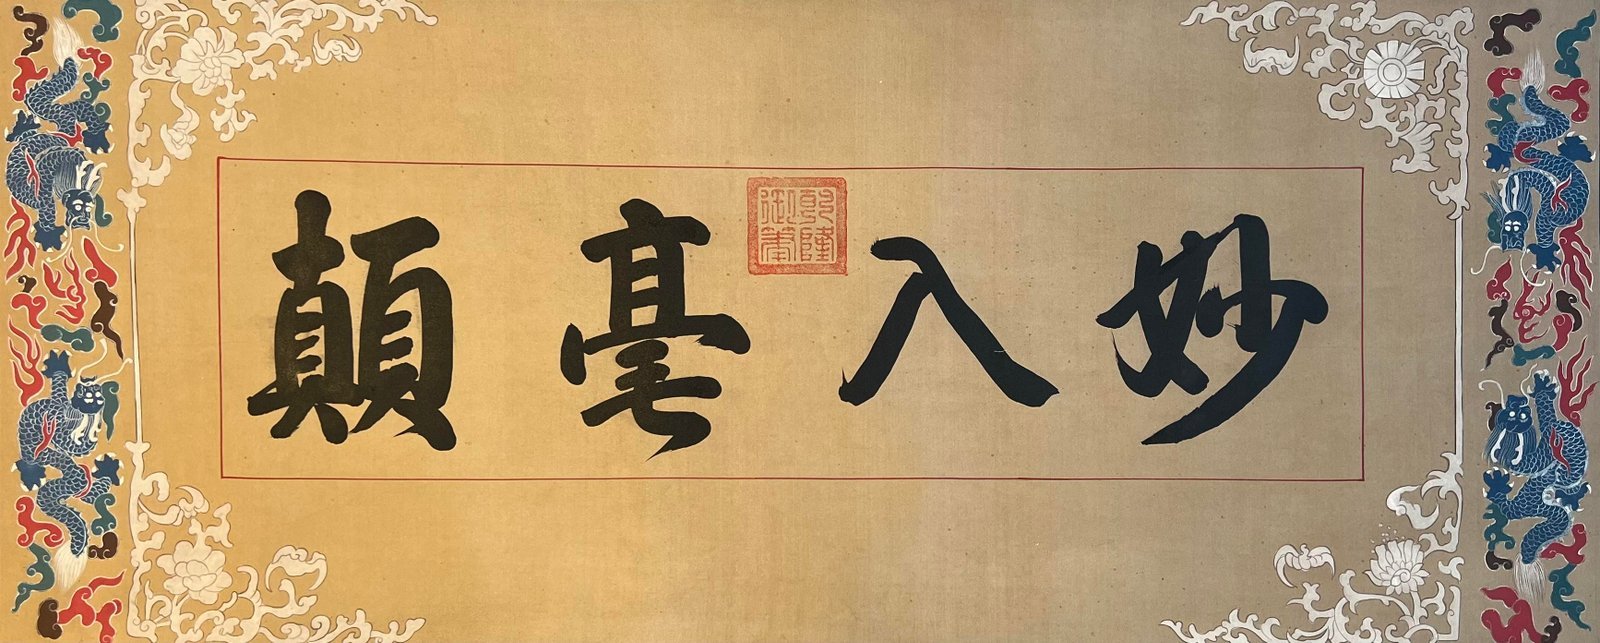 妙入毫顛
乾隆御筆